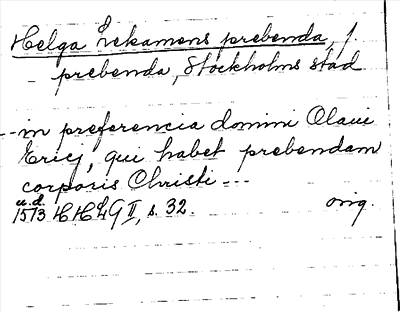 Helga Lekamens prebenda, f.
– prebenda, Stockholms stad
-- in preferencia domini Olaui
Ericj, qui habet prebendam
corporis Christi ---
u.d.
1513 HHLG II, s. 32. orig.